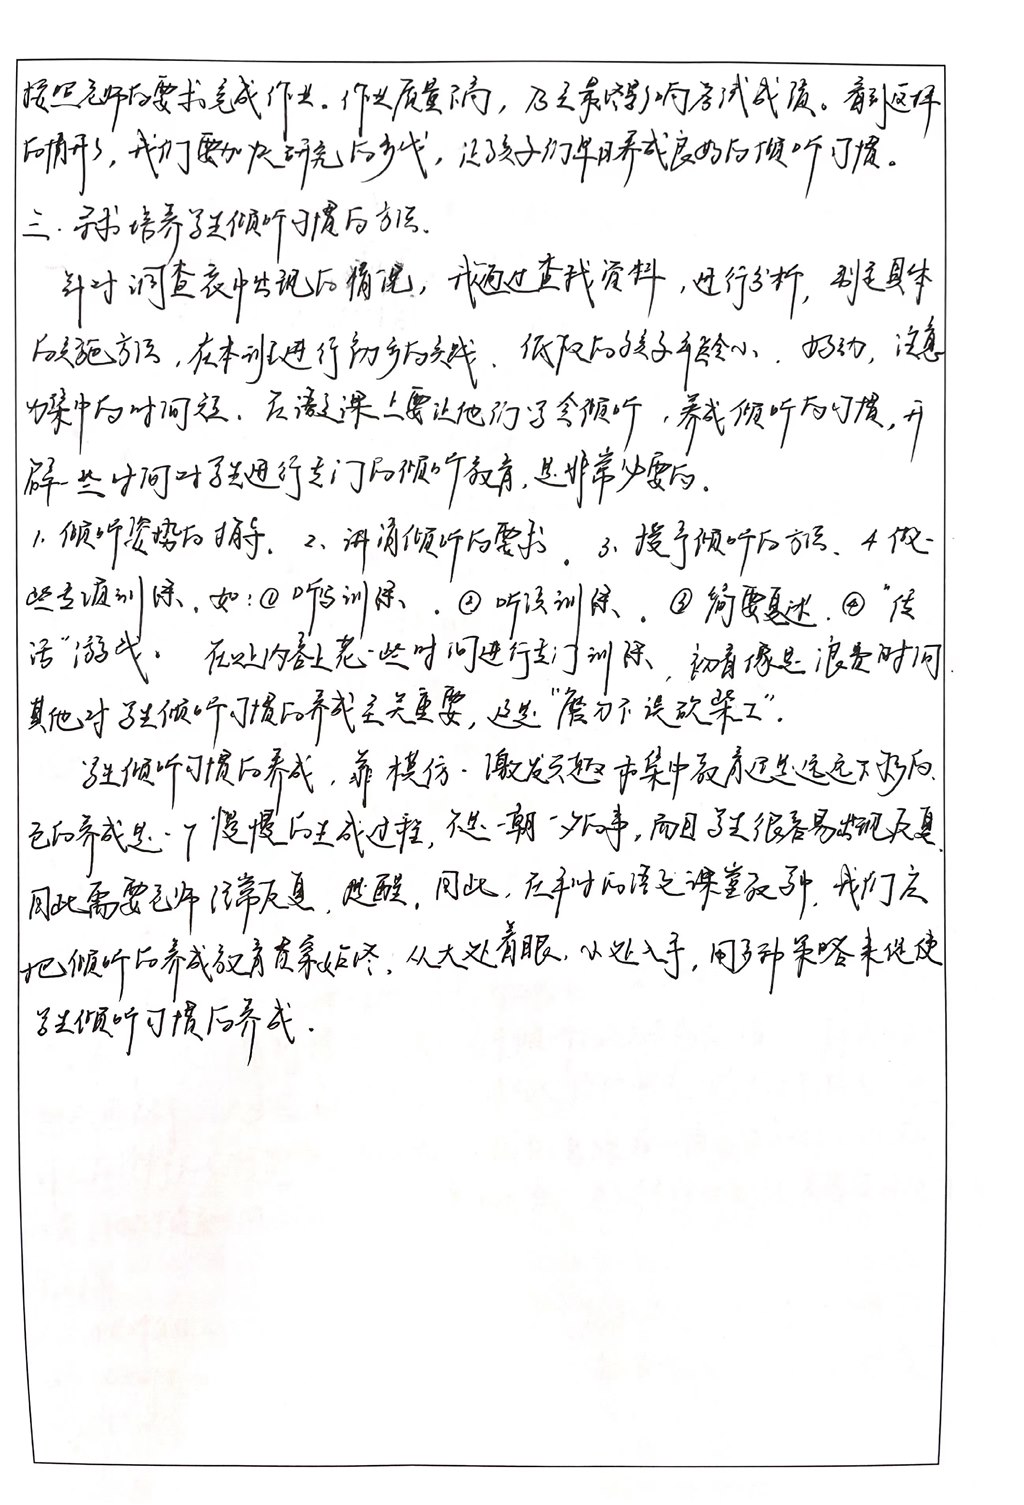 按照老师的要求完成作业。作业质量不高，乃至最终影响考试成绩。看到这样
的情形，我们要加快研究的步伐，让孩子们早日养成良好的倾听习惯。
三．寻求培养学生倾听习惯的方法．
针对调查表中出现的情况，我通过查找资料，进行分析，制定具体
的实施方法，在本班进行初步的实践．低段的孩子年龄小、好动，注意
力集中的时间短．在语文课上要让他们学会倾听，养成倾听的习惯，开
辟一些时间对学生进行专门的倾听教育，是非常必要的．
1、倾听姿势的指导．2、讲清倾听的要求．3、授予倾听的方法、4 做一
些专项训练、如：① 听写训练、．② 听读训练、．③ 简要复述．④“传
话”游戏。在以上内容上花一些时间进行专门训练，初看像是浪费时间．
其他对学生倾听习惯的养成至关重要，这是“磨刀不误砍柴工”．
学生倾听习惯的养成，靠模仿．激发兴趣和集中教育还是远远不够的．
它的养成是一个慢慢的生成过程，不是一朝一夕的事，而且学生很容易出现反复．
因此需要老师经常反复，提醒．因此，在平时的语文课堂教学中，我们应
把倾听的养成教育贯穿始终．从大处着眼．小处入手，用多种策略来促使
学生倾听习惯的养成．